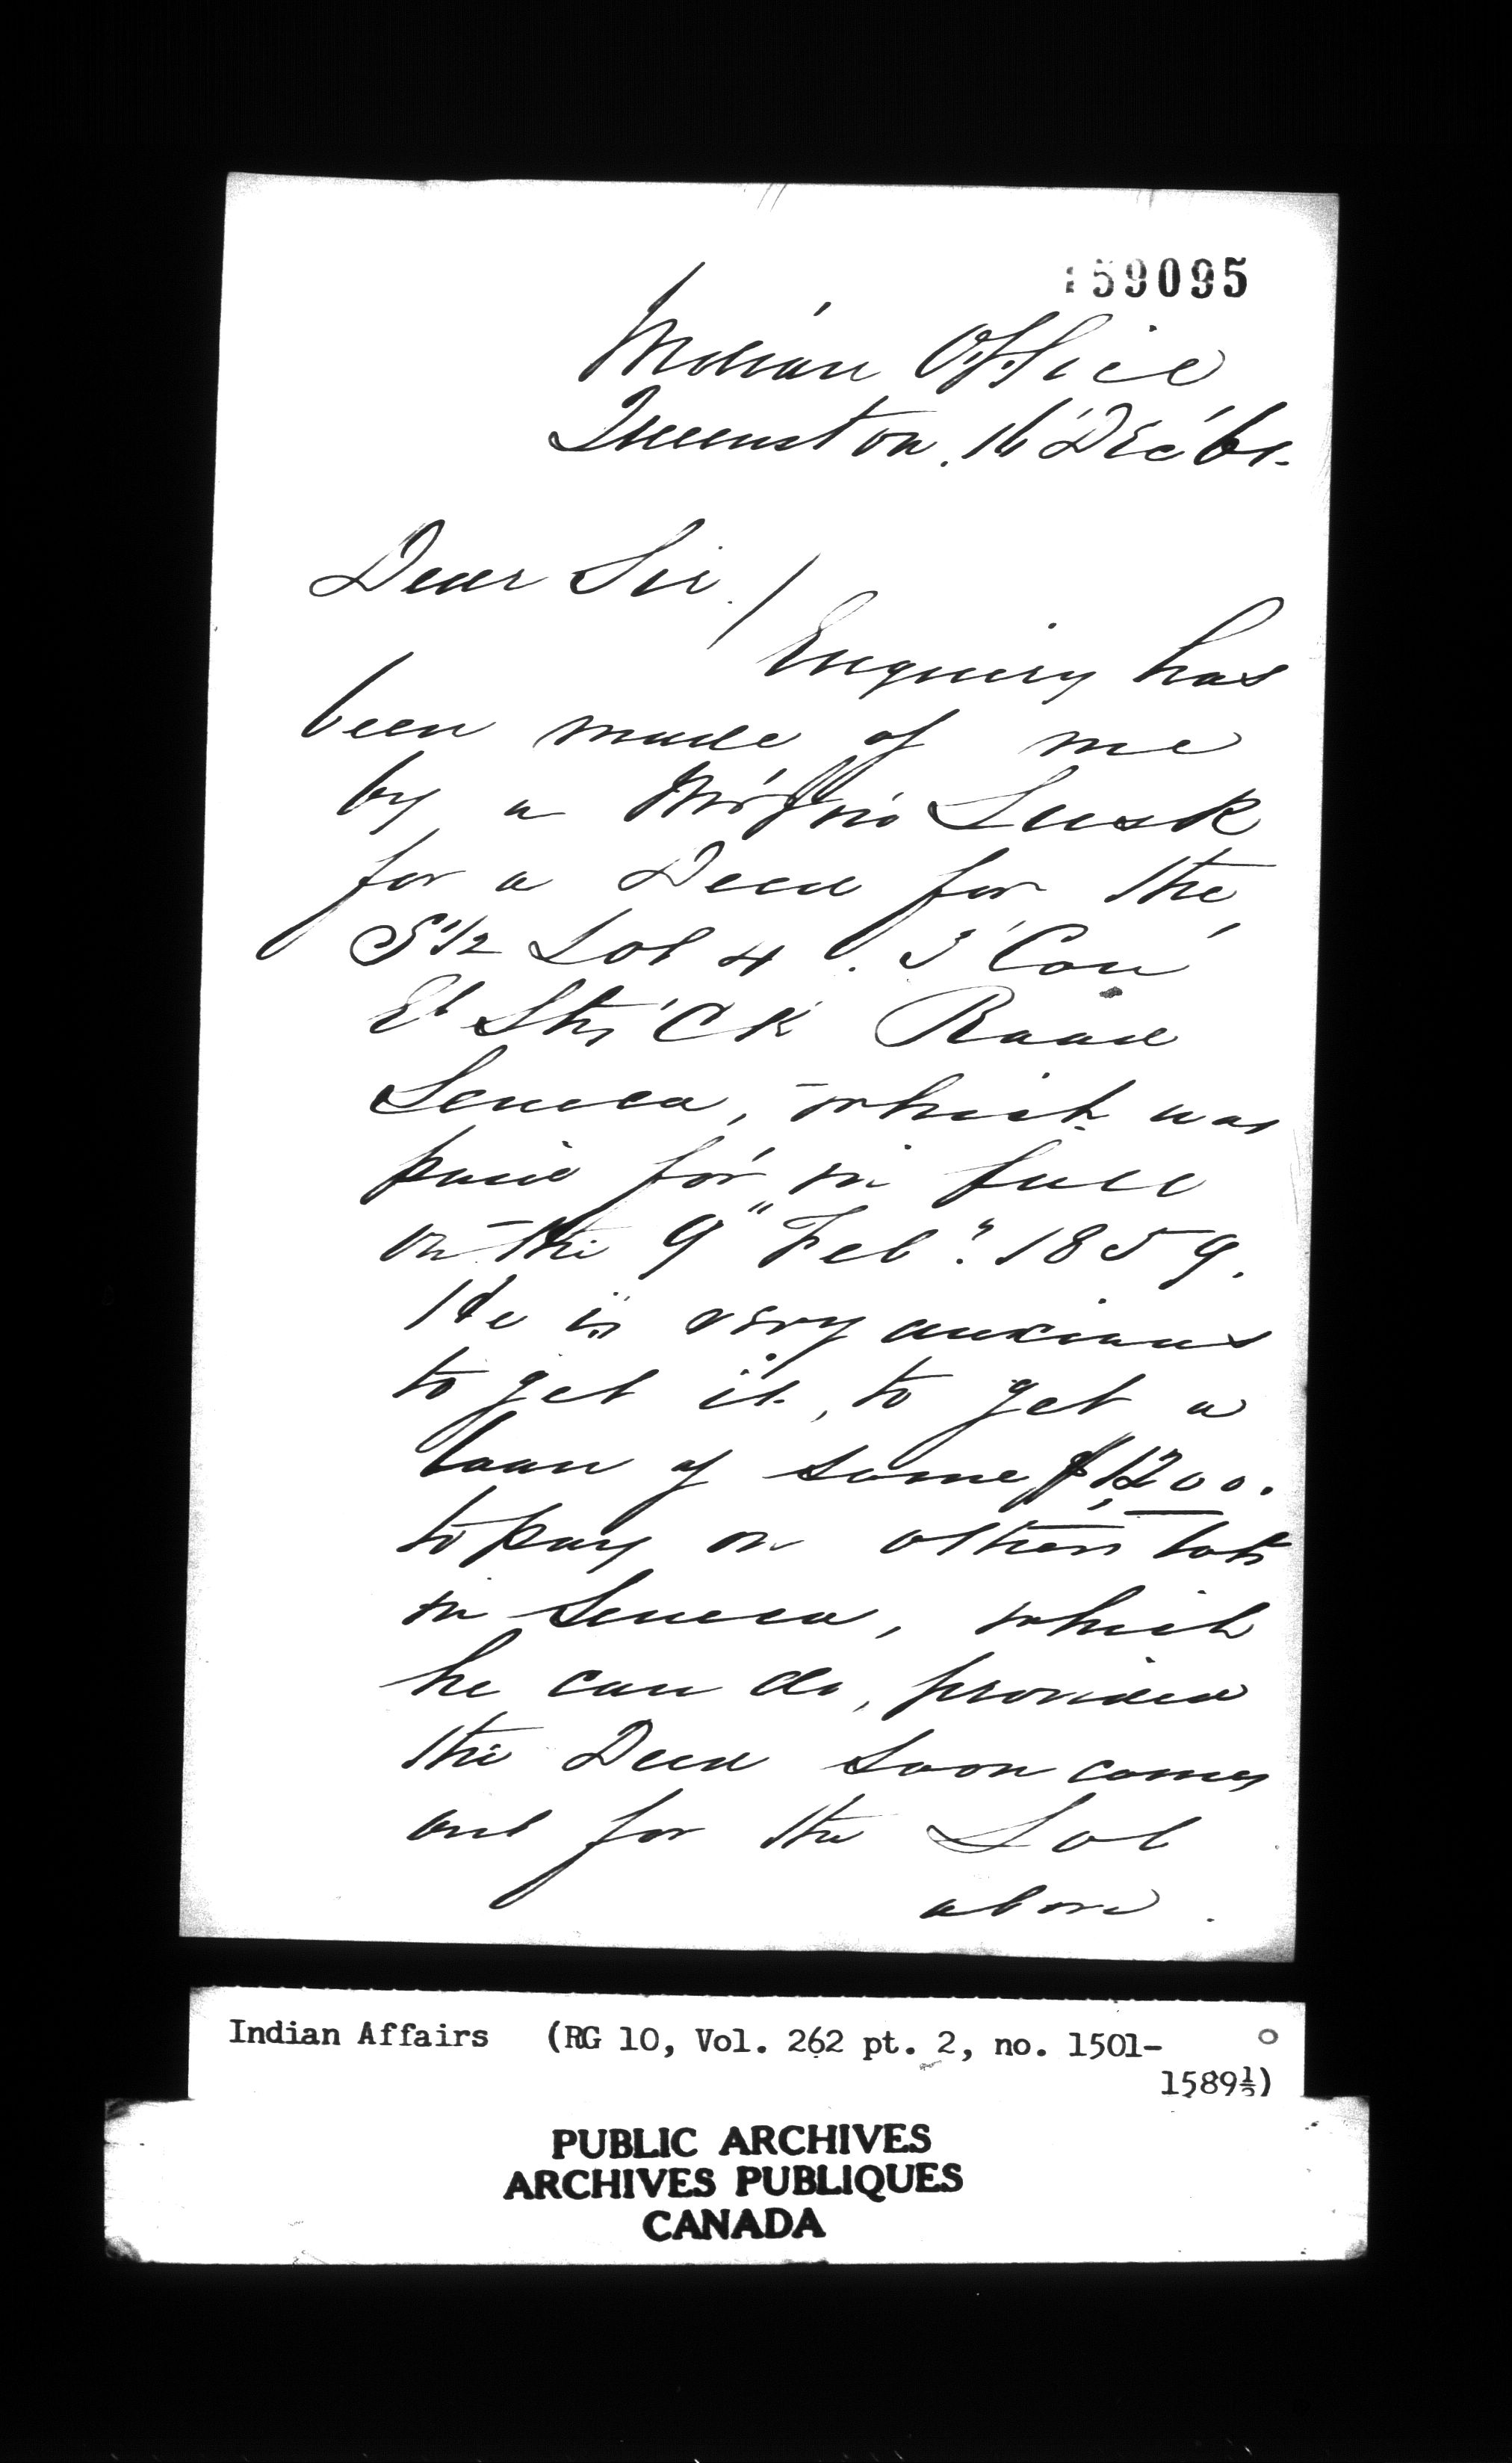 159095
Indian Office
Queenston. 16 Dec '61.
Dear Sir./
Enquiry has
been made of me
by a Lusk
for a Deed for the
S 1/2 Lot 4 . 3' Con
Et Stg C K Road
Seneca, which was
paid for in full
on the 9" Feby. 1859.
He is very anxious
to get it, to get a
loan of some $1200.
to pay on other lots
in Seneca, which
he can do, provided
the Deed soon comes
out for the Lot
above.
Indian Affairs (RG 10, Vol. 262 pt. 2, no. 1501-
1589½)
PUBLIC ARCHIVES
ARCHIVES PUBLIQUES
CANADA